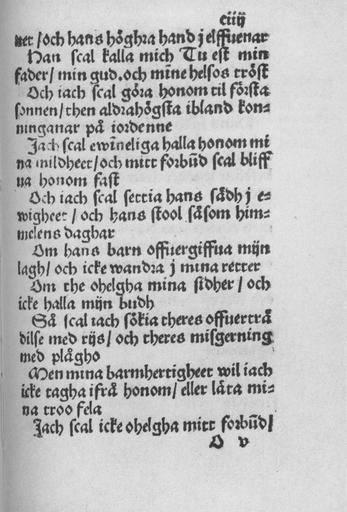 ciiij
net / och hans höghra hand j elffuenar
Han scal kalla mich Tu est min
fader / min gud . och mine helsos tröst
Och iach scal göra honom til första
sonnen / then aldrahögsta ibland kon-
ninganar på iordenne
Jach scal ewīneliga halla honom mi
na mildheet / och mitt forbūd scal bliff
ua honom fast
Och iach scal settia hans sädh j e-
wigheet / och hans stool såsom him-
melens daghar
Om hans barn offuergiffua mijn
lagh / och icke wandra j mina retter
Om the ohelgha mina sidher / och
icke halla mijn budh
Så scal iach sökia theres offuerträ
dilse med rijs / och theres misgerning
med plågho
Men mina barmhertigheet wil iach
icke tagha ifrå honom / eller låta mi-
na troo fela
Jach scal icke ohelgha mitt forbūd /
O v